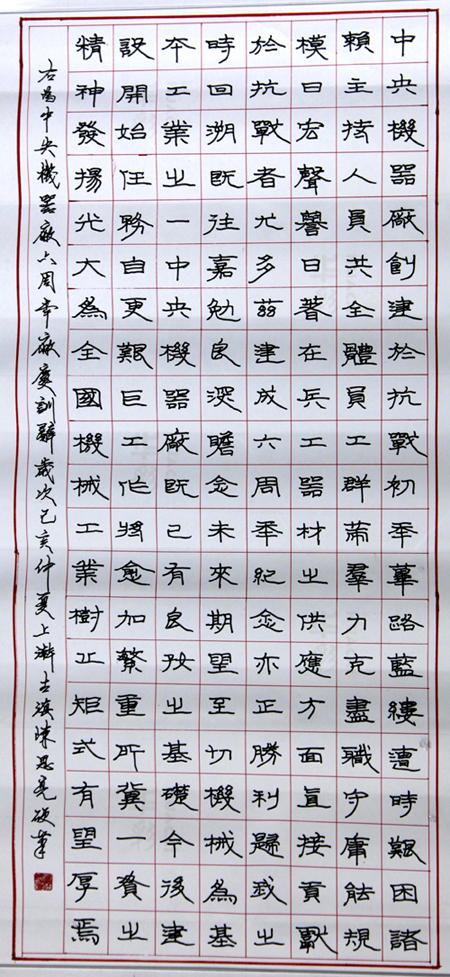 中央機器廠創建於抗戰初秊蓽路藍縷遭時艱困諸
賴主持人員共全體員工群策羣力克盡職守庸能規
模日宏聲譽日著在兵工器材之供應方面直接貢獻
於抗戰者尤多茲建成六周秊紀念亦正勝利歸之
時回溯既往嘉勉良深瞻念未來期望至切機械為基
本工業之一中央機器廠既已有良好之基礎今後建
設開始任務自更艱巨工作將愈加繁重所冀一貫之
精神發揚光大為全國機械工業樹正矩式有望厚焉
右為中央機器廠六周年廠慶訓辭歲次己亥仲夏上澣古滇陳恩亮硬筆